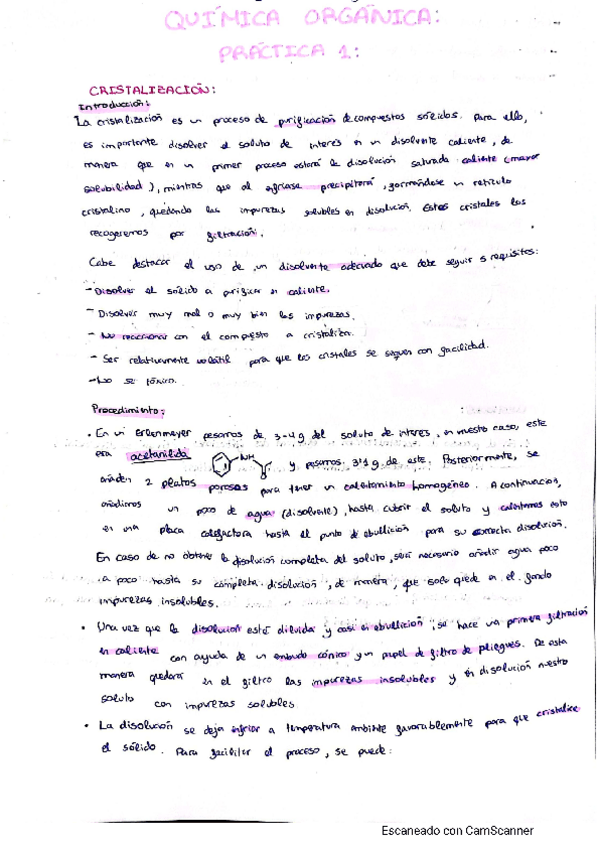 QUÍMICA ORGÁNICA:
PRÁCTICA 1:
CRISTALIZACIÓN:
Introducción:
La cristalización es un proceso de purificación de compuestos sólidos. Para ello,
es importante disolver el soluto de interés en un disolvente caliente, de
manera que en un primer proceso estará la disolución saturada caliente (mayor
solubilidad), mientras que al enfriarse precipitará, formándose un retículo
cristalino, quedando las impurezas solubles en disolución. Estos cristales los
recogeremos por filtración.
Cabe destacar el uso de un disolvente adecuado que debe seguir 5 requisitos:
- Disolver el sólido a purificar en caliente.
- Disolver muy mal o muy bien las impurezas.
- No reaccionar con el compuesto a cristalizar.
- Ser relativamente volátil para que los cristales se sequen con facilidad.
- No se tóxico.
Procedimiento:
• En un Erlenmeyer pesamos de 3-4 g del soluto de interés, en nuestro caso, este
era acetanilida NH O y pesamos 3'1 g de este. Posteriormente, se
añaden 2 platos porosos para tener un calentamiento homogéneo. A continuación,
añadimos un poco de agua (disolvente), hasta cubrir el soluto y calentamos esto
en una placa calefactora hasta el punto de ebullición para su correcta disolución.
En caso de no obtener la disolución completa del soluto, será necesario añadir agua poco
a poco hasta su completa disolución, de manera, que solo quede a el fondo
impurezas insolubles.
• Una vez que la disolución está diluida y casi en ebullición, se hace una primera filtración
en caliente con ayuda de un embudo cónico y un papel de filtro de pliegues. De esta
manera quedarán en el filtro las impurezas insolubles y en disolución nuestro
soluto con impurezas solubles.
• La disolución se deja enfriar a temperatura ambiente favorablemente para que cristalice
el sólido. Para facilitar el proceso, se puede:
Escaneado con CamScanner